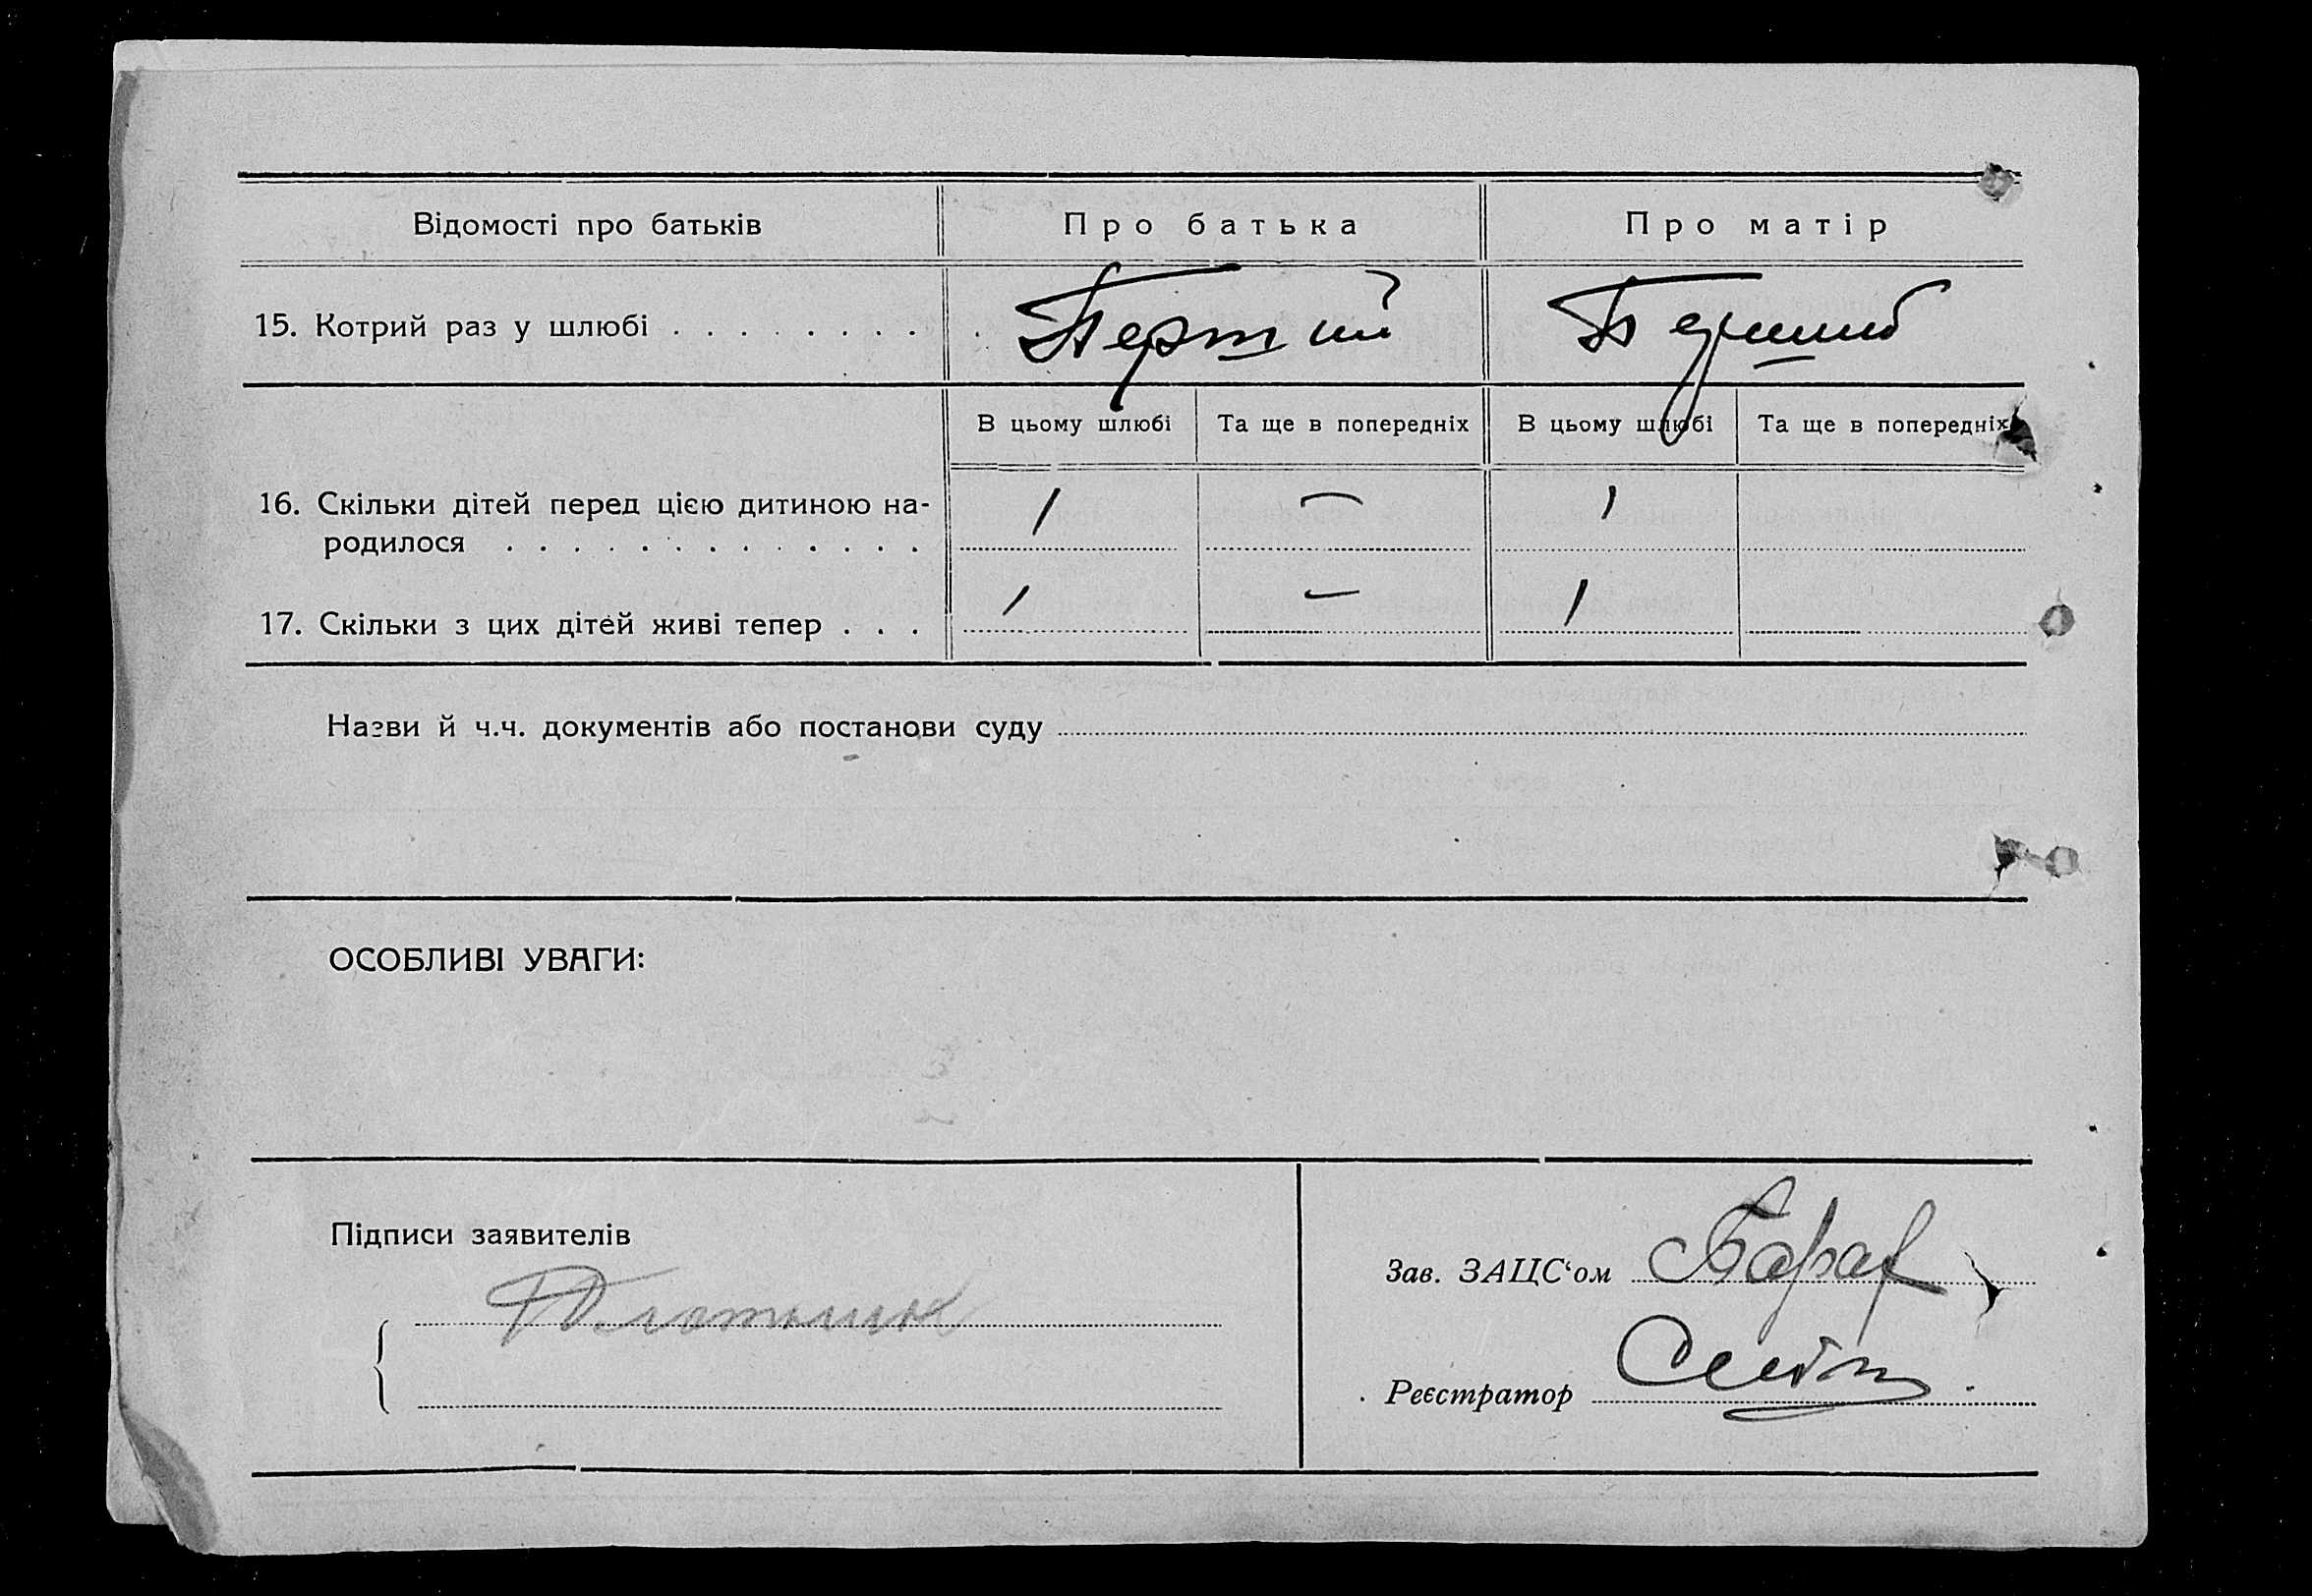 Відомості про батьків
Про батька
Про матір
15. Котрий раз у шлюбі . . . . . . . . .
Перший
Перший
В цьому шлюбі
Та ще в попередніх
В цьому шлюбі
Та ще в попередніх
16. Скільки дітей перед цією дитиною на-
родилося . . . . . . . . . . . . .
1
—
1
17. Скільки з цих дітей живі тепер . . .
1
—
1
Назви й ч.ч. документів або постанови суду
ОСОБЛИВІ УВАГИ:
Підписи заявителів
Зав. ЗАЦС‘ом
Реєстратор